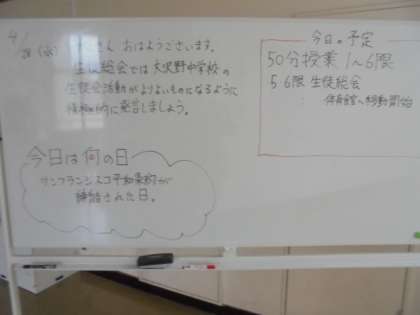 4/28 (水) みなさん おはようございます。
生徒総会では大沢野中学校の
生徒会活動がよりよいものになるように
積極的に発言しましょう。
今日は何の日
サンフランシスコ平和条約が
締結された日。
今日の予定
50分授業 1~6限
5 6限 生徒総会
: 体育館へ移動開始